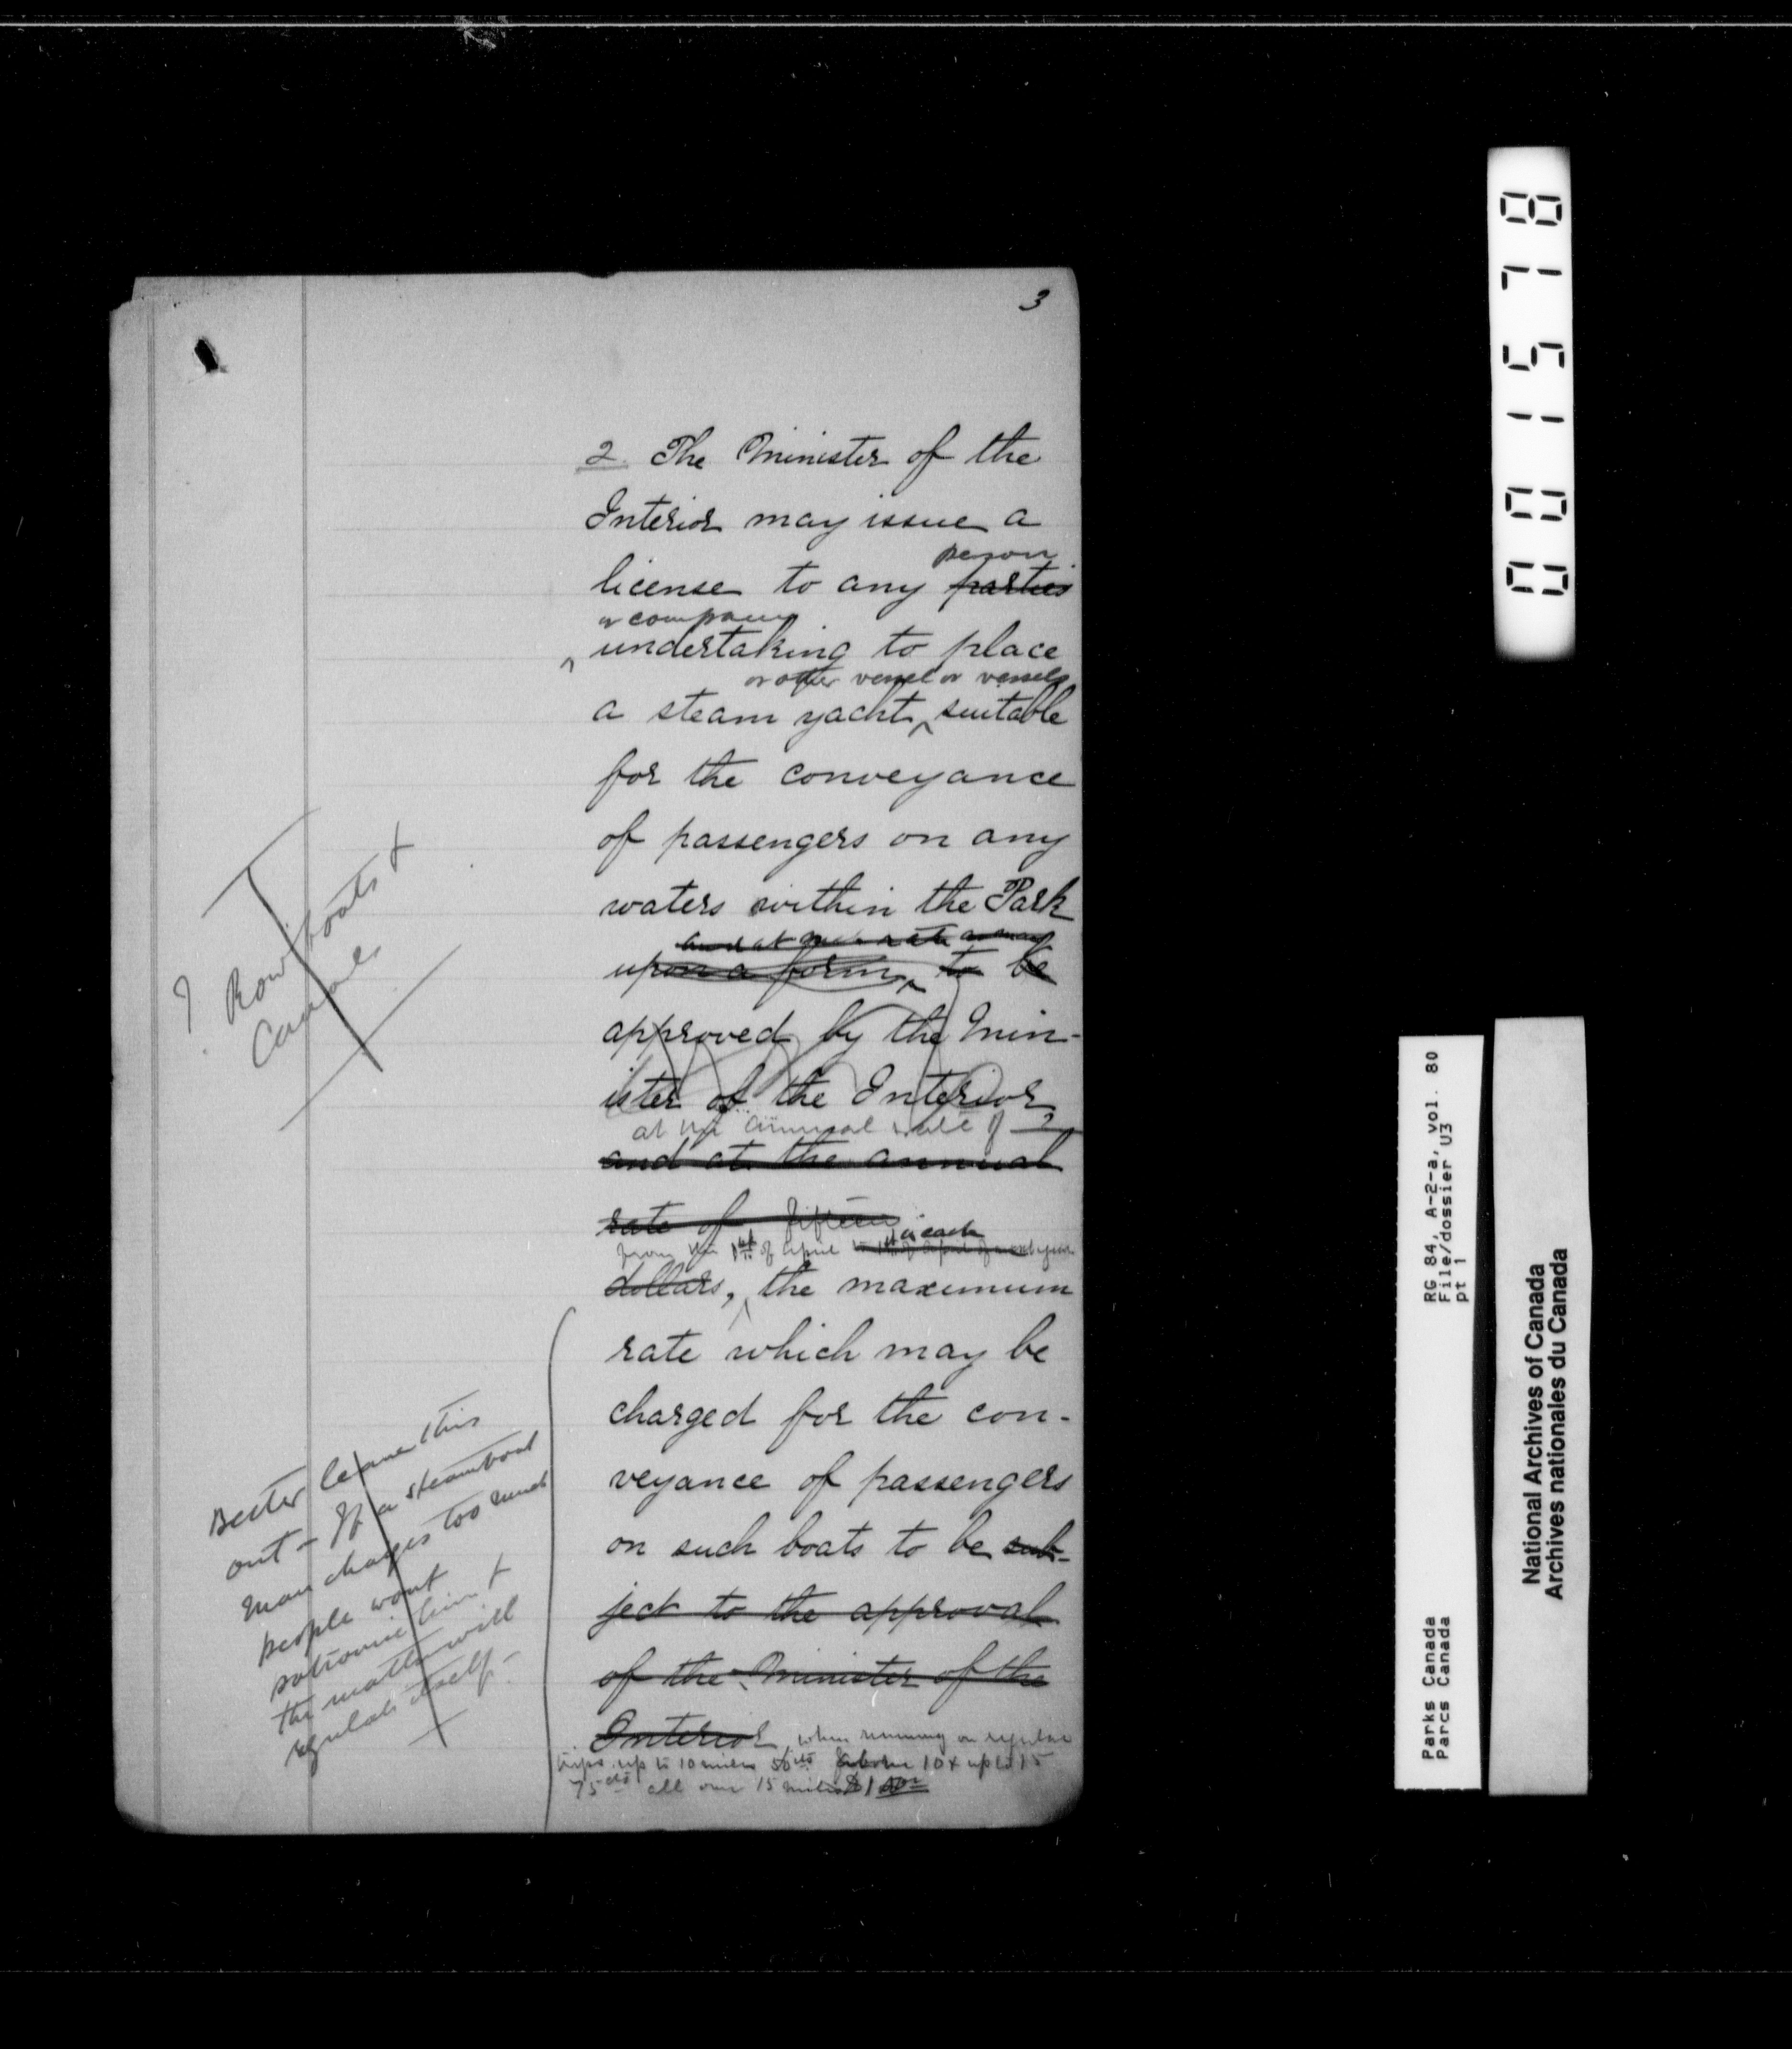 3
2. The Minister of the
Interior may issue a
person
license to any parties
or company
undertaking to place
or other vessel or vessels
a steam yacht, suitable
for the conveyance
of passengers on any
waters within the Park
and at such rate as may
upon a form, to be
approved by the Min-
ister of the Interior
at the annual rate of
and at the annual
rate of fifteen
in each
from the 1st of April to 1st of April of next year
dollars, the maximum
rate which may be
charged for the con-
veyance of passengers
on such boats to be sub-
ject to the approval
of the Minister of the
Interior when running on regular
trips up to 10 miles 50 cts above 10 & up to 15
75 cts all over 15 miles $1.00
? Row boats &
Canoes
Better leave this
out - If a steamboat
man charges too much
people wont
patronise him &
the matter will
regulate itself -
001578
RG 84, A-2-a, vol. 80
File/dossier U3
pt 1
Parks Canada
Parcs Canada
National Archives of Canada
Archives nationales du Canada